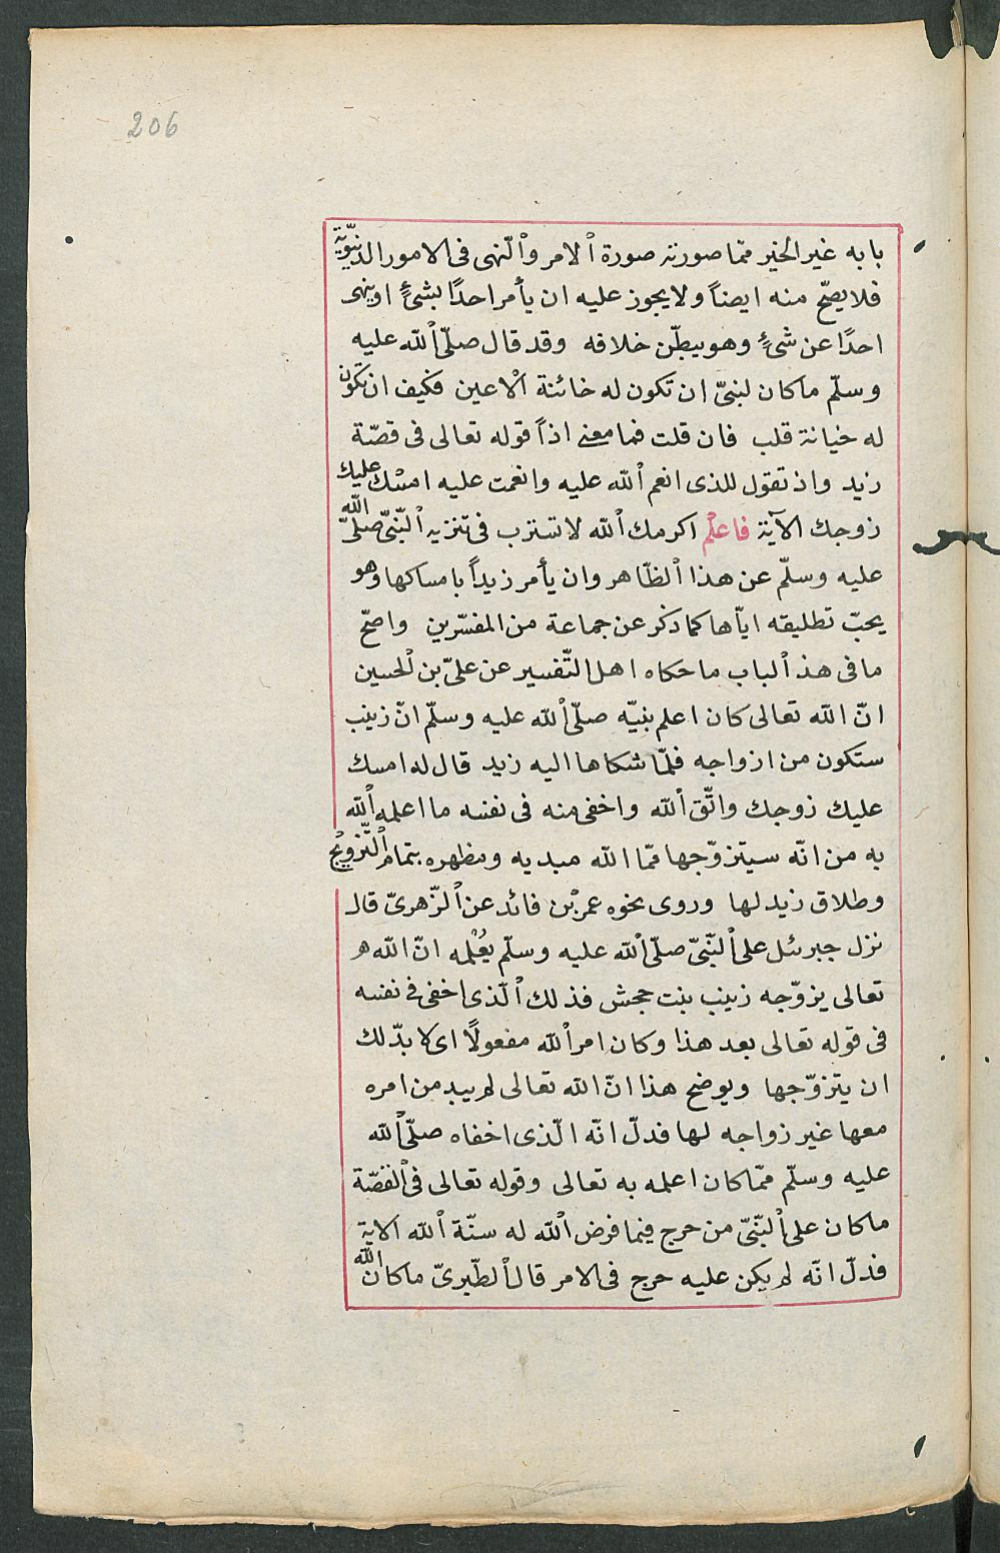 206
بابه غير الخير ممّا صورته صورة ٱلامر وٱلنّهى فى الامور الدّنيويّة
فلا يصحّ منه ايضاً ولا يجوز عليه ان يأمر احدًا بشئٍ او ينهى
احدًا عن شئٍ وهو يبطّن خلافه وقد قال صلّى ٱلله عليه
وسلّم ما كان لنبىّ ان تكون له خائنة ٱلاعين فكيف ان تكون
له خيانة قلب فان قلت فما معنى اذاً قوله تعالى فى قصّة
زيد واذ تقول للذى انعم ٱلله عليه وانعمت عليه امسك عليك
زوجك الآية فاعلم اكرمك ٱلله لا تسترب فى تنزيه ٱلنّبىّ صلّى الله
عليه وسلّم عن هذا ٱلظّاهر وان يأمر زيداً بامساكها وهو
يحبّ تطليقه ايّاها كما ذكر عن جماعة من المفسّرين واصحّ
ما فى هذا ٱلباب ما حكاه اهل التّفسير عن علىّ بن ٱلحسين
انّ الله تعالى كان اعلم نبيّه صلّى ٱلله عليه وسلّم انّ زينب
ستكون من ازواجه فلمّا شكاها اليه زيد قال له امسك
عليك زوجك واتّق ٱلله واخفى منه فى نفسه ما اعلمه ٱلله
به من انّه سيتزوّجها ممّا الله مبديه ومظهره بتمام ٱلتّزويج
وطلاق زيد لها وروى نحوه عمر بْن فائد عن ٱلزّهرىّ قال
نزل جبرئل على ٱلنّبىّ صلّى ٱلله عليه وسلّم يعْلمه انّ الله
تعالى يزوّجه زينب بنت جحش فذلك ٱلّذى اخفى فى نفسه
فى قوله تعالى بعد هذا وكان امر ٱلله مفعولًا اى لا بدّ لك
ان يتزوّجها ويوضح هذا انّ الله تعالى لم يبد من امره
معها غير زواجه لها فدلّ انّه الّذى اخفاه صلّى ٱلله
عليه وسلّم ممّا كان اعلمه به تعالى وقوله تعالى فى ٱلقصّة
ما كان على ٱلنّبىّ من حرج فيما فرض ٱلله له سنّة ٱلله الاية
فدلّ انّه لم يكن عليه حرج فى الامر قال ٱلطّبرىّ ما كان الله